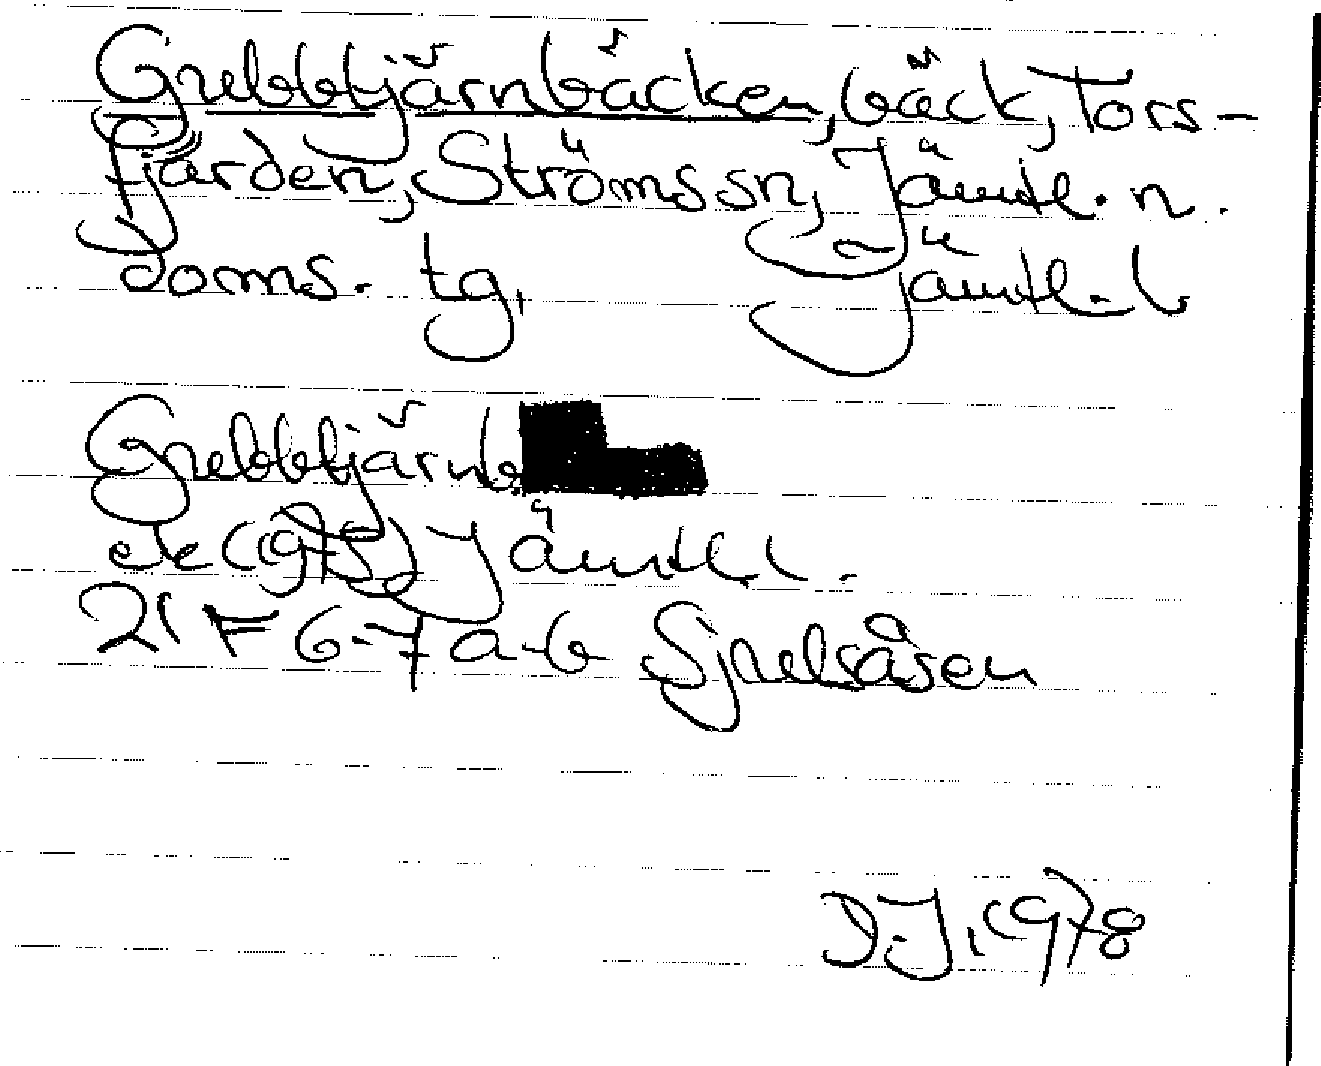 Grubbtjärnbäcken, bäck, Tors-
fjärden, Ströms sn, Jämtl. n.
doms. tg, Jämtl. l
Grubbtjärnb
ek (1975) Jämtl l.
21 F 6-7 a-b Sjulsåsen
D.J. 1978